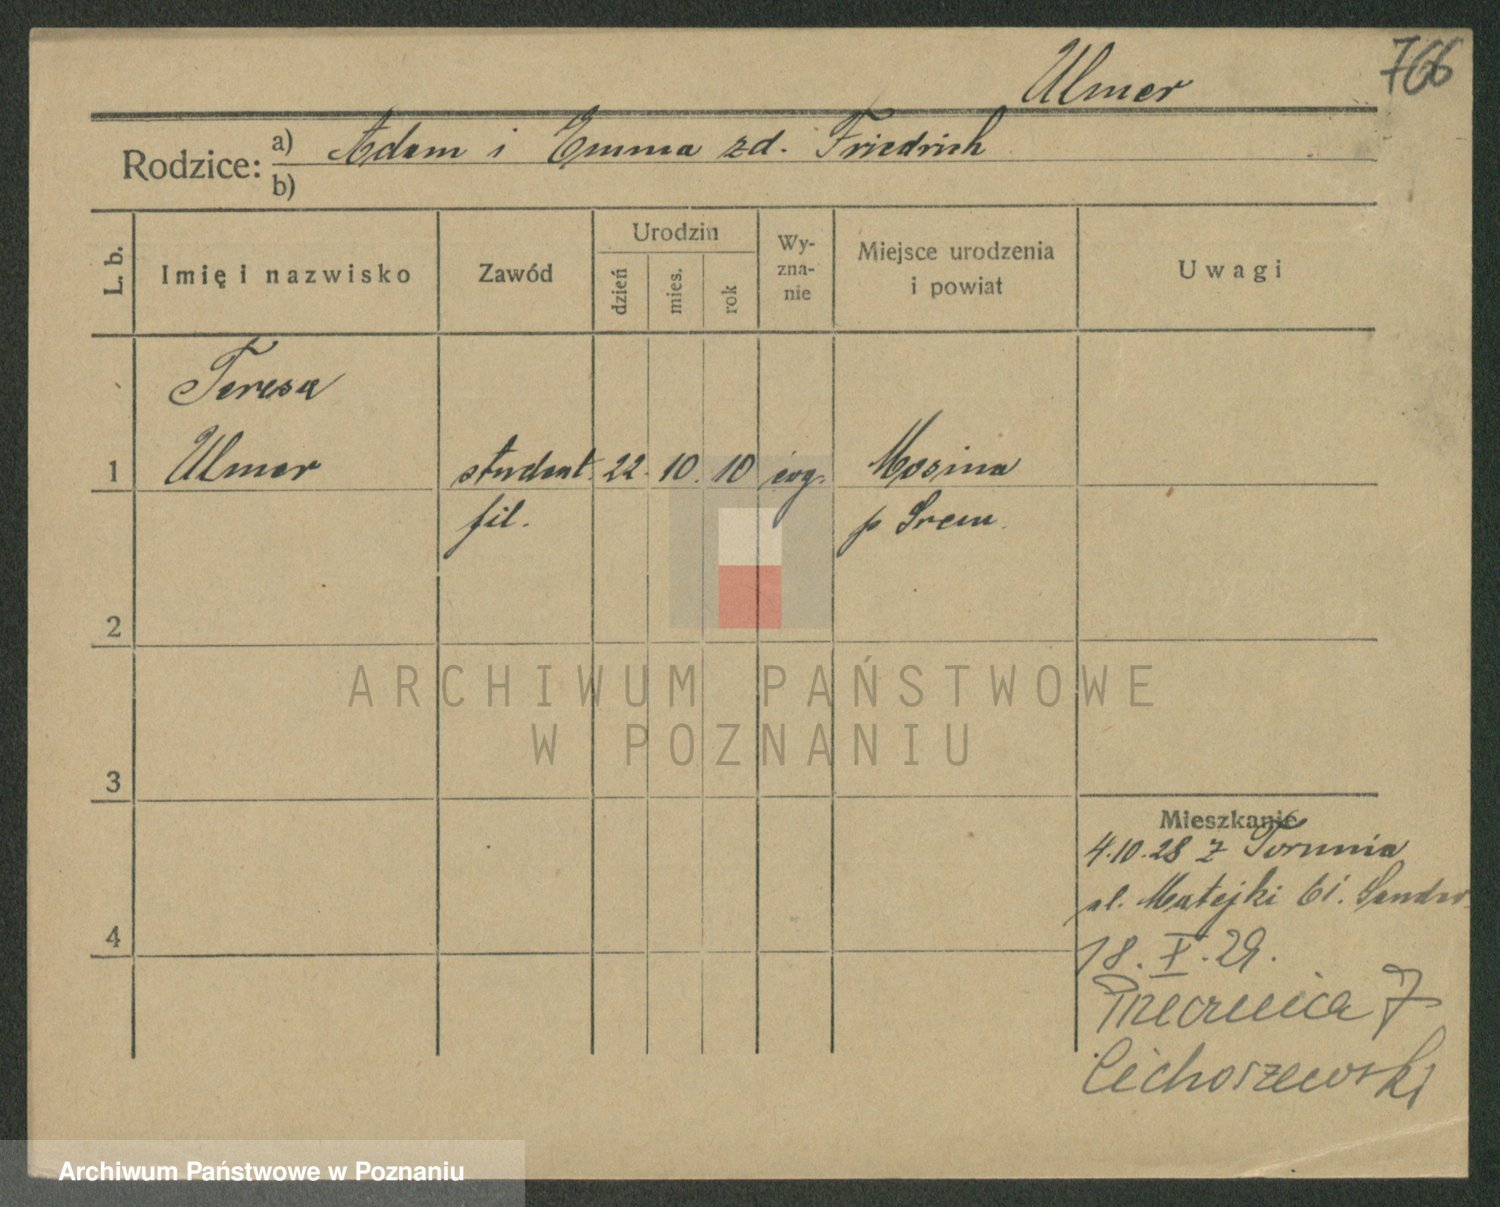 Ulmer
766
Rodzice: a) Adam i Emma zd. Friedrich
b)
L. b.
Imię i nazwisko
Zawód
Urodzin
dzień
mies.
rok
Wy-
zna-
nie
Miejsce urodzenia
i powiat
Uwagi
Teresa
1 Ulmer student. 22. 10. 10 ewg. Mosina
fil. p Śrem.
2
ARCHIWUM PAŃSTWOWE
W POZNANIU
3
Mieszkanie
4.10.28 z Torunia
ul. Matejki 61. Sander
18. X. 29.
4
Przecznica 7
Cichoszewski
Archiwum Państwowe w Poznaniu